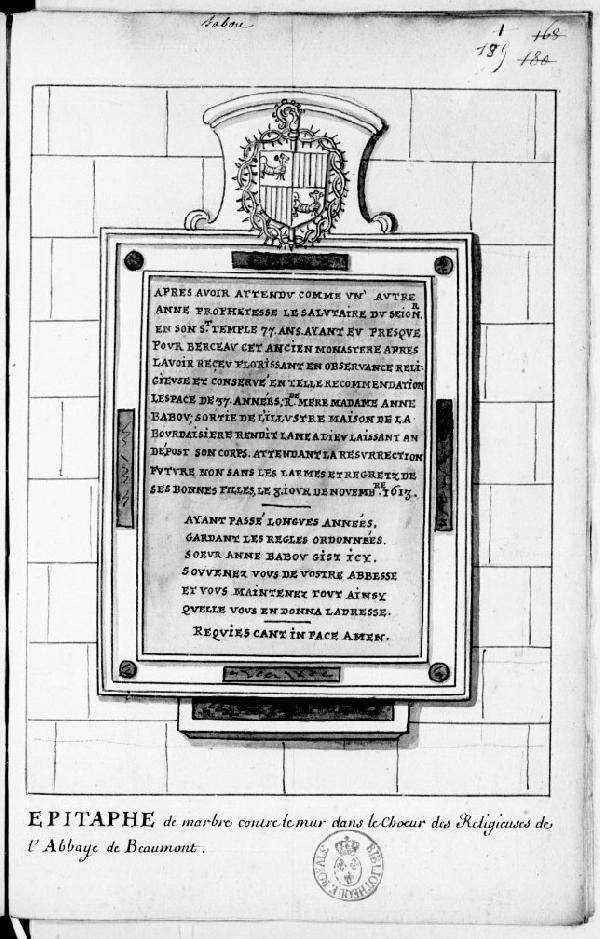 Babou
1
168
189
180
APRES AVOIR ATTENDV COMME VN' AVTRE
ANNE PROPHETESSE LE SALVTAIRE DV SEIGN.R
EN SON S.T TEMPLE 77. ANS. AYANT EV PRESQVE
POVR BERCEAV CET ANCIEN MONASTERE APRES
LAVOIR REÇEV FLORISSANT EN OBSERVANCE RELI-
GIEVSE ET CONSERVÉ EN TELLE RECOMMENDATION
LESPACE DE 37. ANNÉES, R.DE MERE MADAME ANNE
BABOV, SORTIE DE L'ILLVSTRE MAISON DE LA
BOVRDAISIERE RENDIT LAME A DIEV LAISSANT AN
DÉPOST SON CORPS. ATTENDANT LA RESVRRECTION
FVTVRE NON SANS LES LARMES ET REGRETZ DE
SES BONNES FILLES, LE 8. IOVR DE NOVEMB.RE 1613.
AYANT PASSÉ LONGVES ANNÉES,
GARDANT LES REGLES ORDONNÉES.
SOEVR ANNE BABOV GIST ICY.
SOVVENEZ VOVS DE VOSTRE ABBESSE
ET VOVS MAINTENEZ TOVT AINSY
QVELLE VOVS EN DONNA LADRESSE.
REQVIES CANT IN PACE AMEN.
EPITAPHE de marbre contre le mur dans le Choeur des Religieuses de
l'Abbaye de Beaumont.
BIBLIOTHEQUE ROYALE